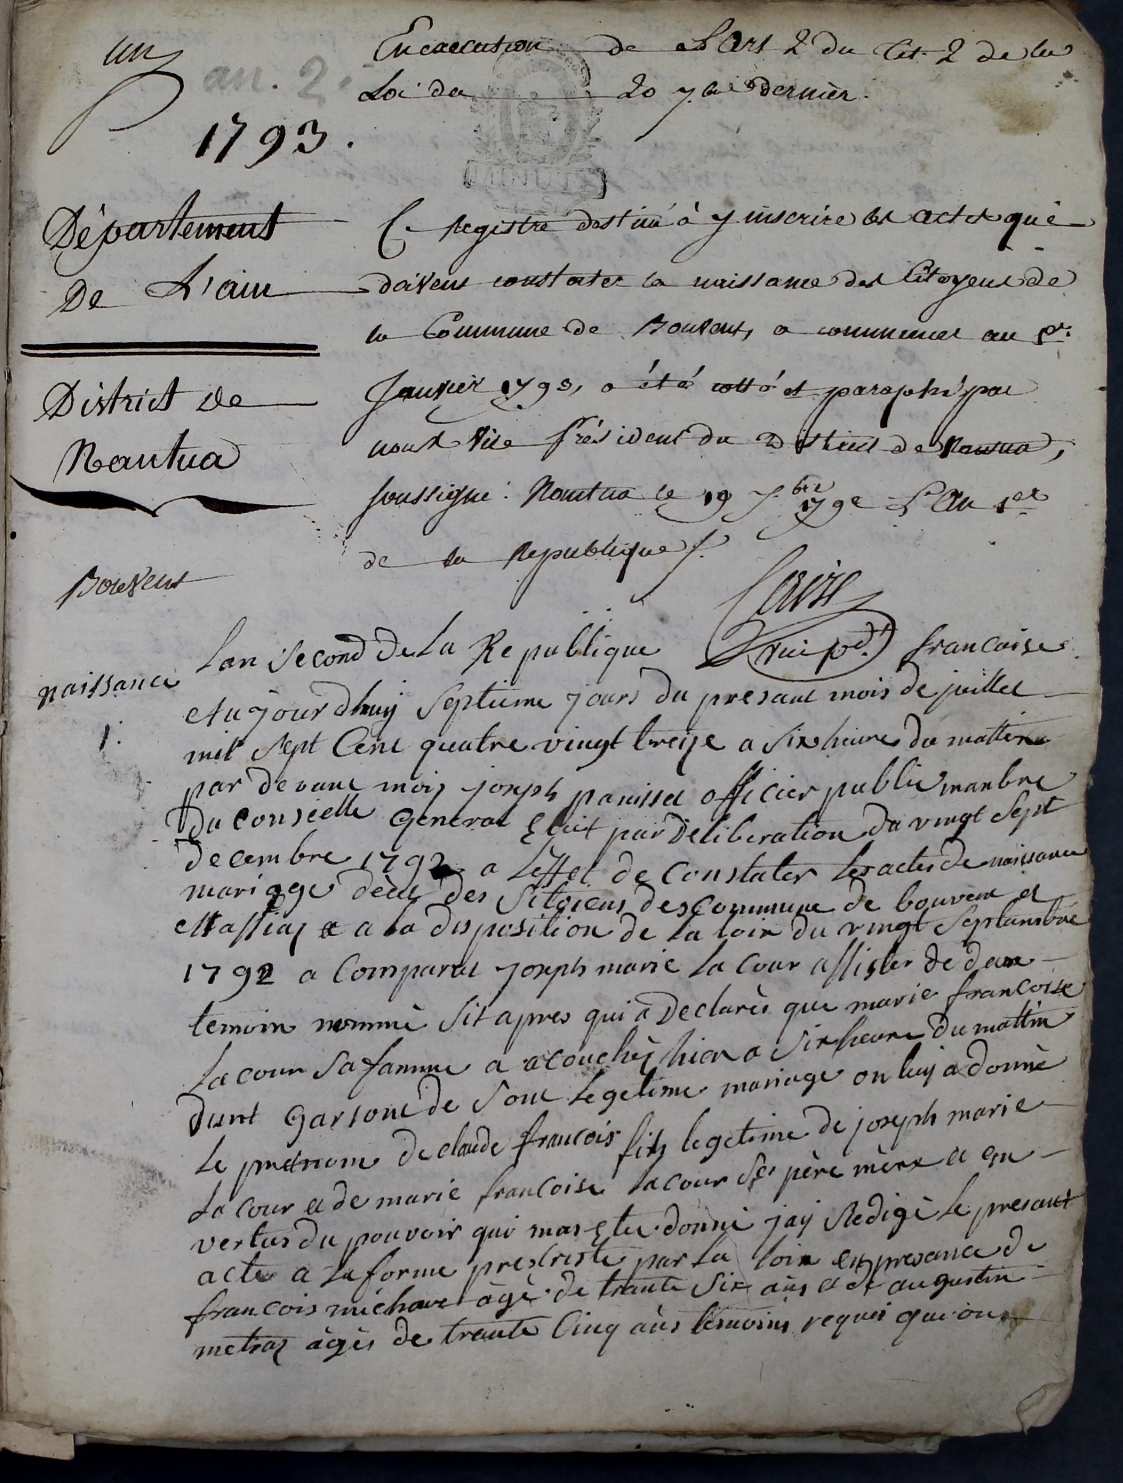 un
an. 2.
1793.
Département
De L'ain
District de
Nantua
Bouvent
En execution de l'Art 2 du tit. 2 de la
Loi du 20 7bre dernier.
Ce Registre destiné à y inscrire les actes qui
doivent constater la naissance des Citoyens de
la Commune de Bouvent, a commencer au 1er.
Janvier 1793, a été cotté et paraphé par
nous Vice Président du District de Nantua,
soussigné. Nantua le 19 Xbre 1792 L'An 1er
de la Republique
vice pdt.
Lan Second De La Republique francaise
naissance
et aujourdhuij Septieme jours du presant mois de juillet
1.
mil Sept Cent quatre vingt treize a Six heure du mattin
par devant moij joseph panisset officier public manbre
Du Conseille General Elut par Deliberation Du vingt Sept
decembre 1792 a Leffet de Constater Les actes de naissance
mariage décé Des Sitoiens des Commune de bouvent et
Massiaz et a la disposition de La loix du vingt Septambre
1792 a Comparut joseph marie La Cour assister de deux
temoin nommé Sit apres qui a Declarés que marie francoise
La cour Sa famme a acouché hier a Six heure Du mattin
Dunt Garsont de Sont Legetime mariage on luij a donné
Le prenom De claude francois fils legetime de joseph marie
La Cour et de marie francoise La cour Ses père mère et en
vertus du pouvoir qui mas Ete donné jaij Redigé Le presant
acte a La forme prescriste par La loix en presance de
francois michaut agé de trante Six ans et de augustin
metraz agés de trante Cinq ans temoins requis qui on